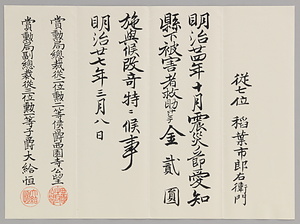 従七位 稲葉市郎右衛門
明治廿四年十月震災之節愛知
縣下被害者救助トシテ金貳圓
施與候段奇特ニ候事
明治廿七年三月八日
賞勲局總裁従一位勲一等侯爵西園寺公望
賞勲局副總裁従二位勲一等子爵大給恒